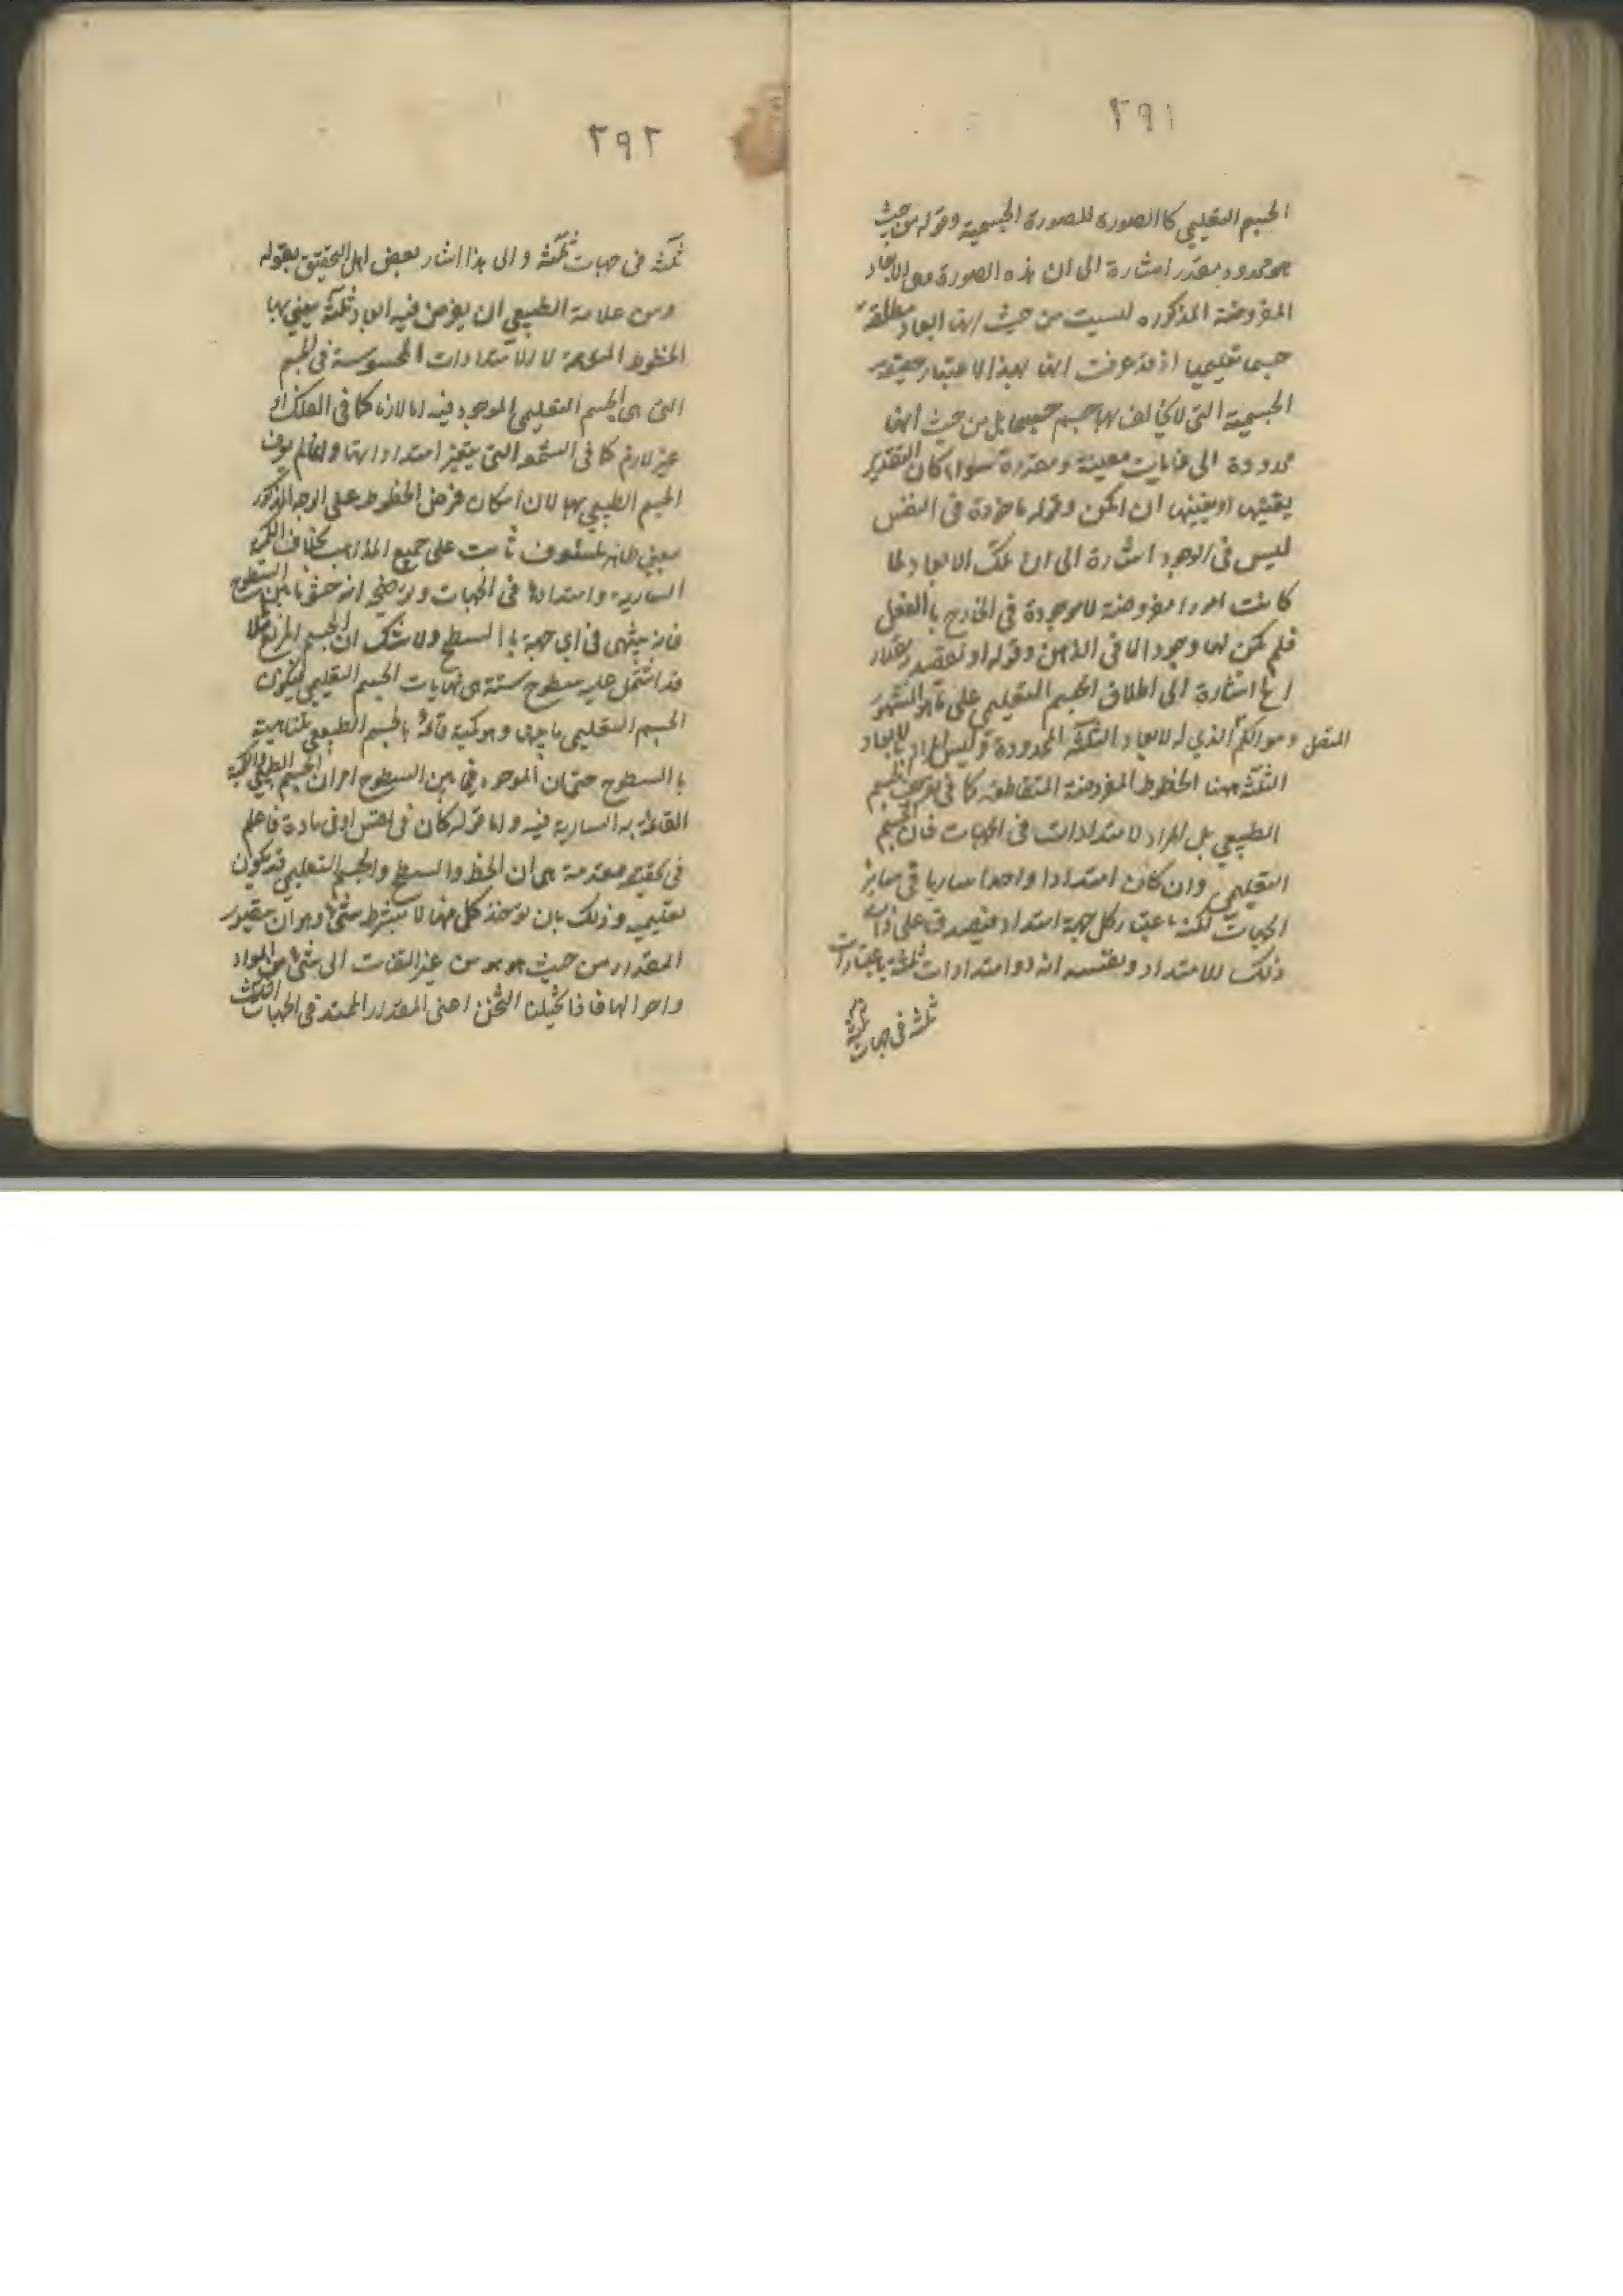 ٢٩١
الجسم التعليمي كا الصورة للصورة الجسمية وقوله من حيث
هو محدود مقدر اشارة الى ان هذه الصورة وهي الابعاد
المفروضة المذكوره ليست من حيث انها ابعاد مطلقة
جسما تعليميا اذ قد عرفت انها بهذا الاعتبار حقيقة
الجسمية التي لا يخالف بها جسم جسما بل من حيث انها
محدودة الى غايات معينة ومقدرة سواء كان التقدير
بعينها او بغيرها ان امكن وقوله ماخوذة في النفس
ليس في الوجود اشارة الى ان تلك الابعاد لما
كانت امورا مفروضة لا موجودة في الخارج با الفعل
فلم يكن لها وجود الا في الذهن وقوله او نقصد بمقدار
الخ اشارة الى اطلاق الجسم التعليمي على ما هو المشهور
المتصل وهو الكم الذي له الابعاد الثلثة المحدودة وليس المراد بالابعاد
الثلثة ههنا الخطوط المفروضة المتقاطعة كا في تعريف الجسم
الطبيعي بل المراد الامتدادات في الجهات فان الجسم
التعليمي وان كان امتدادا واحدا ساريا في سائر
الجهات لكنه باعتبار كل جهة امتداد فيصدق على ذات
ذلك الامتداد ونفسه انه ذو امتدادات ثلثة باعتبارات
ثلثة في جهات ثلثة
٢٩٢
ثلثة في جهات ثلثة والى هذا اشار بعض اهل التحقيق بقوله
ومن علامة الطبيعي ان يفرض فيه ابعاد ثلثة يعني بها
الخطوط لا الامتدادات المحسوسة في الجسم
التي هي الجسم التعليمي الموجود فيه اما لازما كا في الفلك او
غير لازم كا في الشمعة التي يتغير امتداداتها وانما لم يعرف
الجسم الطبيعي بها لان امكان فرض الخطوط على الوجه المذكور
معنى ظاهر مكشوف ثابت على جميع المذاهب بخلاف الكمية
السارية وامتدادها في الجهات وتوضيحه انه حشو ما بين السطوح
فانه ينتهي في اي جهة با السطح ولا شك ان الجسم المربع مثلا
قد اشتمل عليه سطوح ستة هي نهايات الجسم التعليمي فيكون
الجسم التعليمي ما بينها وهو كمية قائمة بالجسم الطبيعي متناهية
با السطوح حتى ان الموجود فيما بين السطوح امران الجسم الطبيعي والكمية
القائمة به السارية فيه واما قوله كان في نفس او في مادة فاعلم
في تحقيقه مقدمة هي ان الخط والسطح والجسم التعليمي قد يكون
تعليمية وذلك بان توخذ كل منها لا بشرط شئ وهو ان يتصور
المقدار من حيث هو هو من غير التفات الى شئ من المواد
واحوالها فاذا تخيلنا الثخن اعني المقدار الممتد في الجهات الثلث